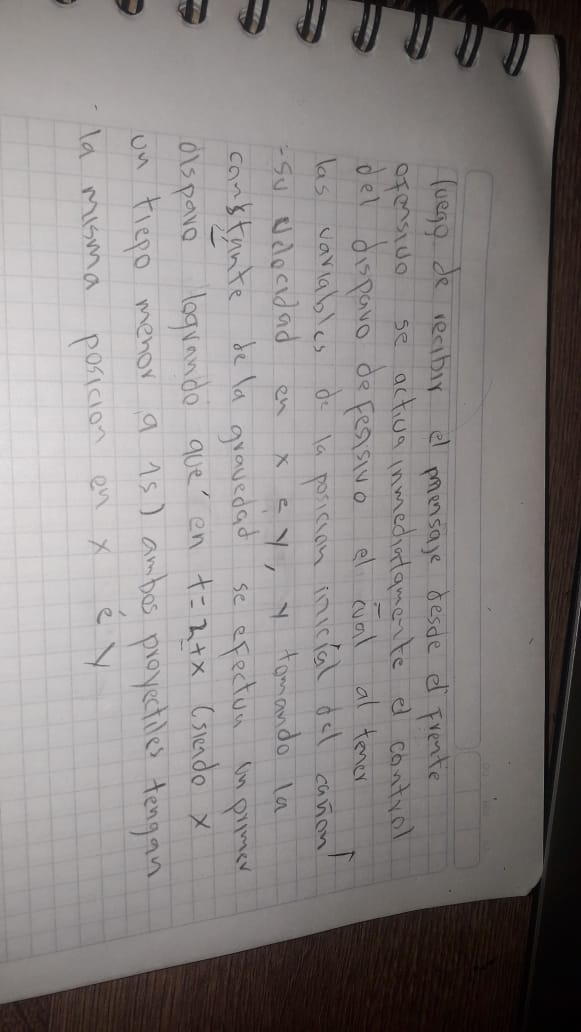 luego de recibir el mensaje desde el frente
ofensivo se activa inmediatamente el control
del disparo defesisivo el cual al tener
las variables de la posicion inicial del cañon
-su velocidad en x e y, y tomando la
constante de la gravedad se efectua un primer
disparo logrando que en t=2+x (siendo x
un tiepo menor a 1s) ambos proyectiles tengan
la misma posicion en x é y